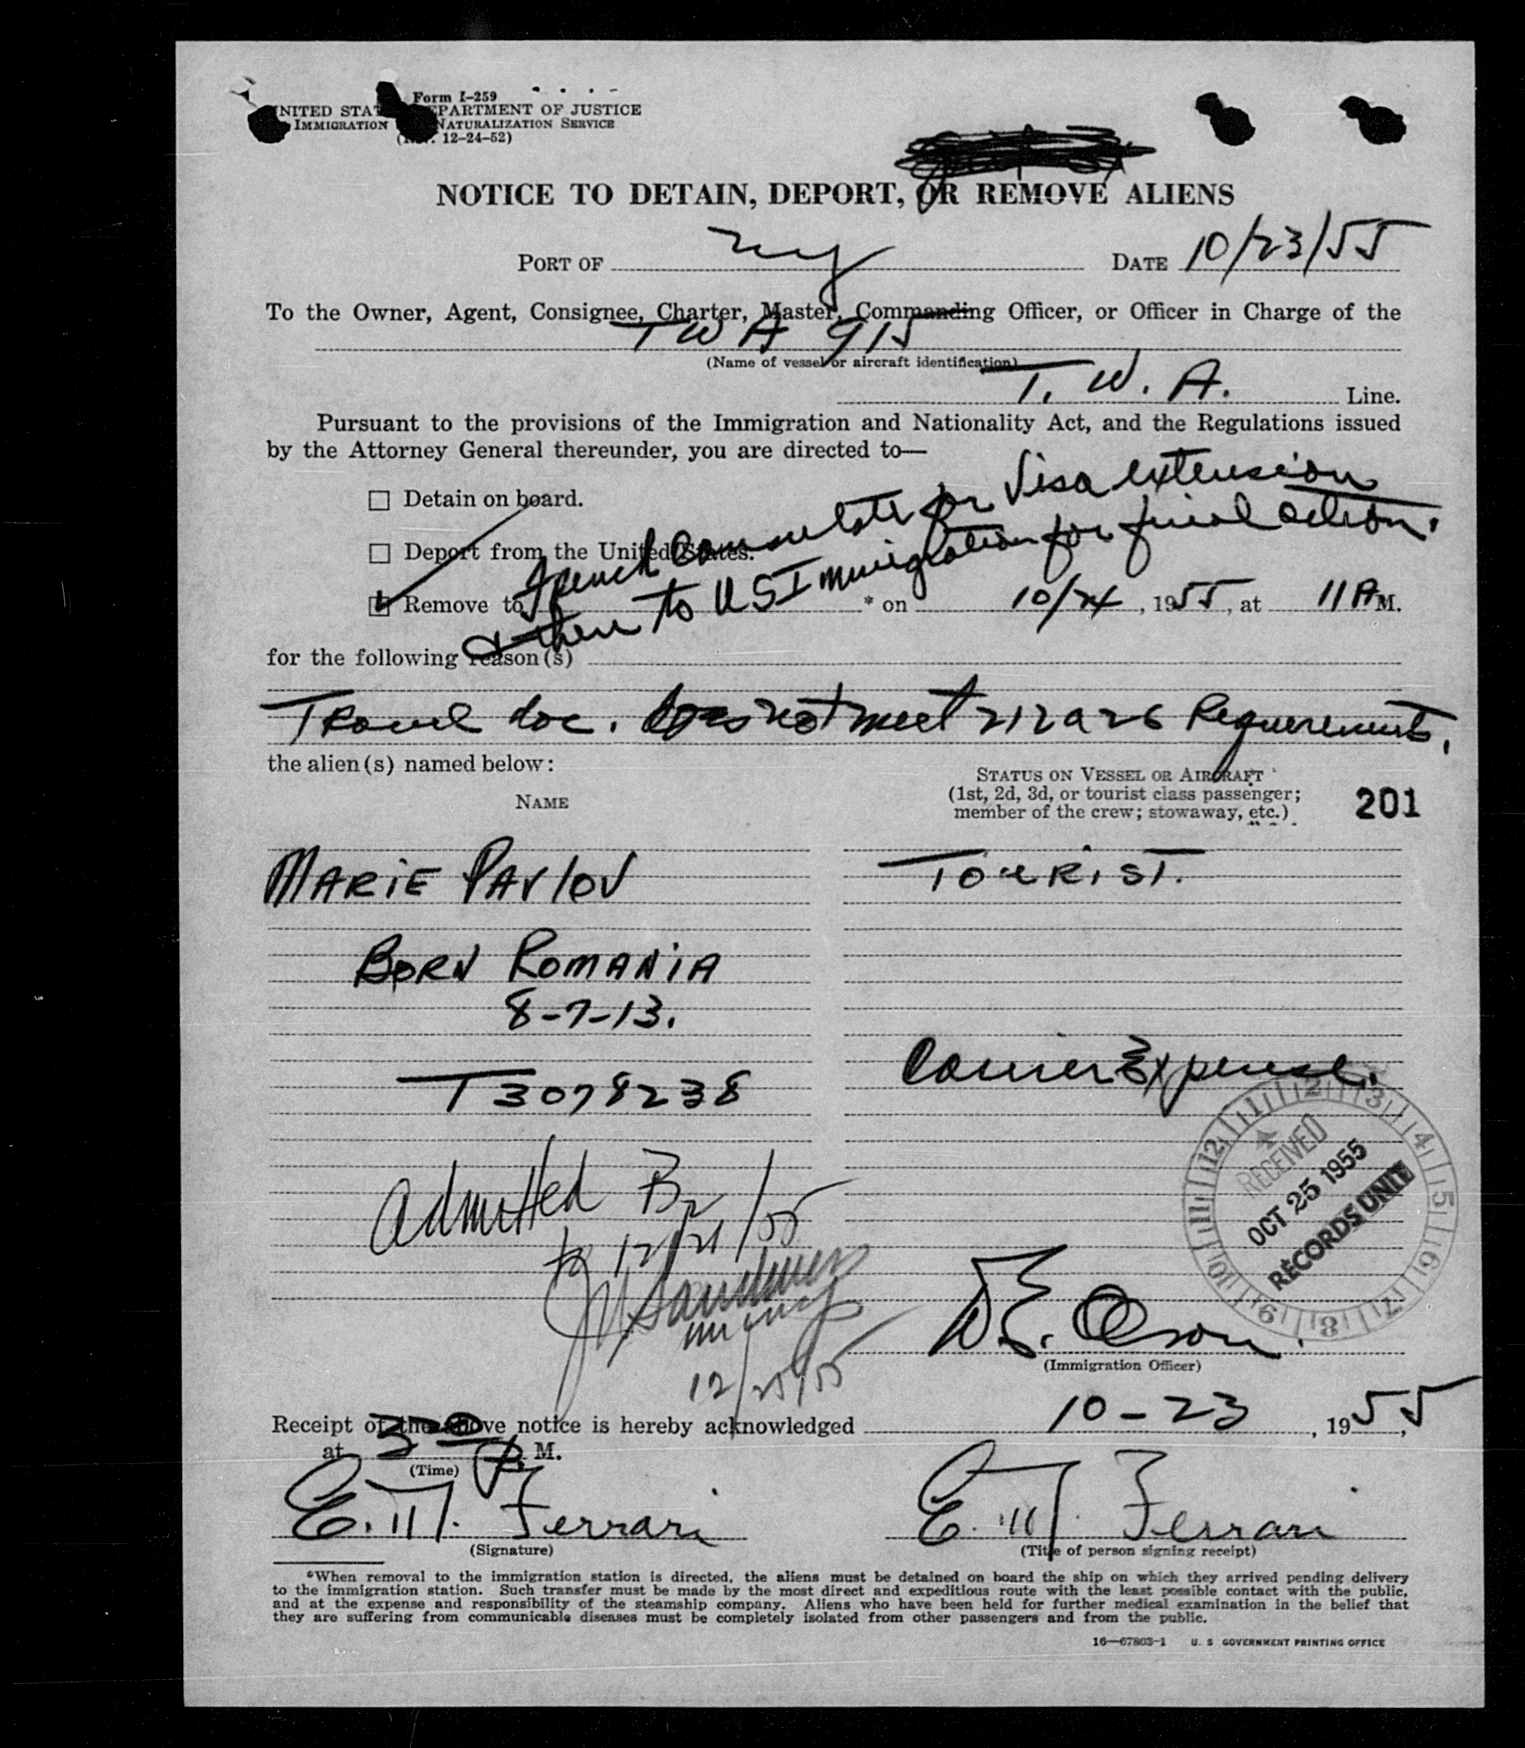 Form I-259
UNITED STATES DEPARTMENT OF JUSTICE
IMMIGRATION NATURALIZATION SERVICE
(Rev. 12-24-52)
NOTICE TO DETAIN, DEPORT, OR REMOVE ALIENS
PORT OF NY DATE 10/23/55
To the Owner, Agent, Consignee, Charter, Master, Commanding Officer, or Officer in Charge of the
TWA 915
(Name of vessel or aircraft identification)
T. W. A. Line.
Pursuant to the provisions of the Immigration and Nationality Act, and the Regulations issued
by the Attorney General thereunder, you are directed to—
☐ Detain on board.
☐ Deport from the United States.
☑ Remove to French Consulate for Visa extension
& then to US Immigration for final action.
* on 10/24, 1955, at 11 A M.
for the following reason(s)
Travel doc. does not meet 212 a 26 Requirements.
the alien(s) named below:
NAME
STATUS ON VESSEL OR AIRCRAFT
(1st, 2d, 3d, or tourist class passenger;
member of the crew; stowaway, etc.)
201
MARIE PAVLOV
TOURIST.
BORN ROMANIA
8-7-13.
Carrier Expense.
T3078238
RECEIVED
OCT 25 1955
RECORDS UNIT
12 1 2 3 4 5 6 7 8 9 10 11
Admitted B2
to 12/21/55
12/25/55
Olson
(Immigration Officer)
Receipt of the above notice is hereby acknowledged 10-23, 1955,
at 320 P. M.
(Time)
E. M. Ferrari
(Signature)
E. M. Ferrari
(Title of person signing receipt)
*When removal to the immigration station is directed, the aliens must be detained on board the ship on which they arrived pending delivery
to the immigration station. Such transfer must be made by the most direct and expeditious route with the least possible contact with the public,
and at the expense and responsibility of the steamship company. Aliens who have been held for further medical examination in the belief that
they are suffering from communicable diseases must be completely isolated from other passengers and from the public.
16—67803-1 U. S GOVERNMENT PRINTING OFFICE